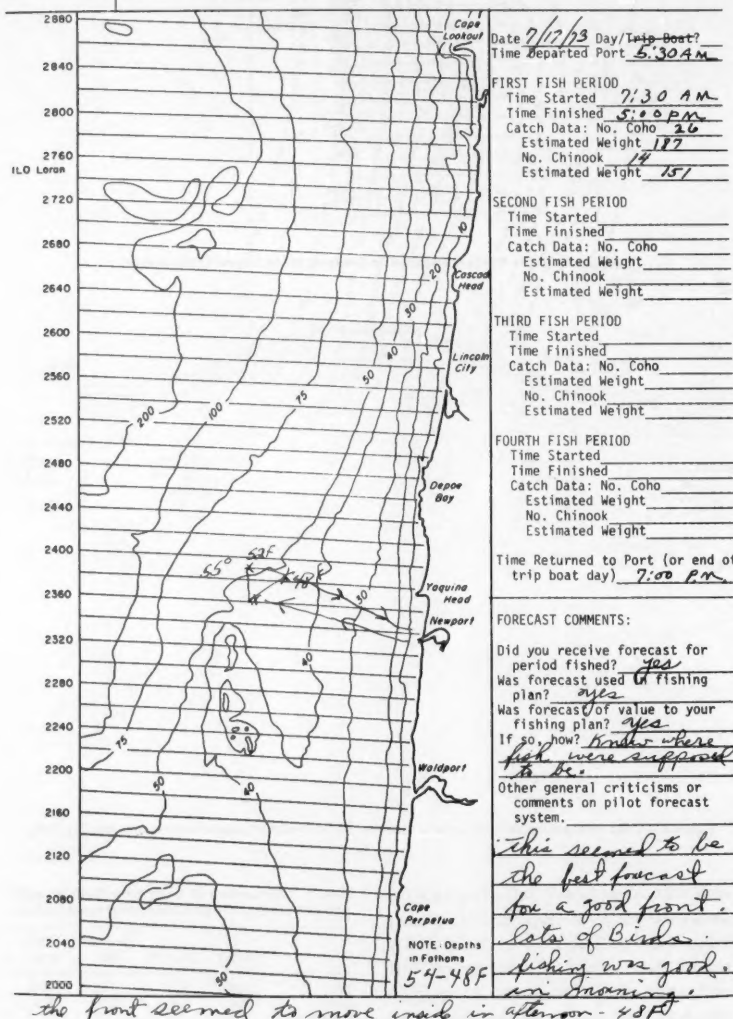 2880
2840
2800
2760
ILO Loran
2720
2680
2640
2600
2560
2520
2480
2440
2400
2360
2320
2280
2240
2200
2160
2120
2080
2040
2000
Cape
Lookout
10
20
Cascade
Head
30
40
Lincoln
City
50
75
100
200
Depoe
Bay
55° 52F
48 F
30
Yaquina
Head
Newport
40
75
50
40
Waldport
Cape
Perpetua
50
NOTE: Depths
in Fathoms
54-48F
Date 7/17/73 Day/Trip Boat?
Time Departed Port 5:30 AM
FIRST FISH PERIOD
Time Started 7:30 AM
Time Finished 5:00 PM
Catch Data: No. Coho 26
Estimated Weight 187
No. Chinook 14
Estimated Weight 151
SECOND FISH PERIOD
Time Started
Time Finished
Catch Data: No. Coho
Estimated Weight
No. Chinook
Estimated Weight
THIRD FISH PERIOD
Time Started
Time Finished
Catch Data: No. Coho
Estimated Weight
No. Chinook
Estimated Weight
FOURTH FISH PERIOD
Time Started
Time Finished
Catch Data: No. Coho
Estimated Weight
No. Chinook
Estimated Weight
Time Returned to Port (or end of
trip boat day) 7:00 P.M.
FORECAST COMMENTS:
Did you receive forecast for
period fished? yes
Was forecast used in fishing
plan? yes
Was forecast of value to your
fishing plan? yes
If so, how? Knew where
fish were supposed
to be.
Other general criticisms or
comments on pilot forecast
system.
this seemed to be
the best forecast
for a good front.
lots of Birds.
fishing was good.
in morning.
the front seemed to move inside in afternoon - 48F